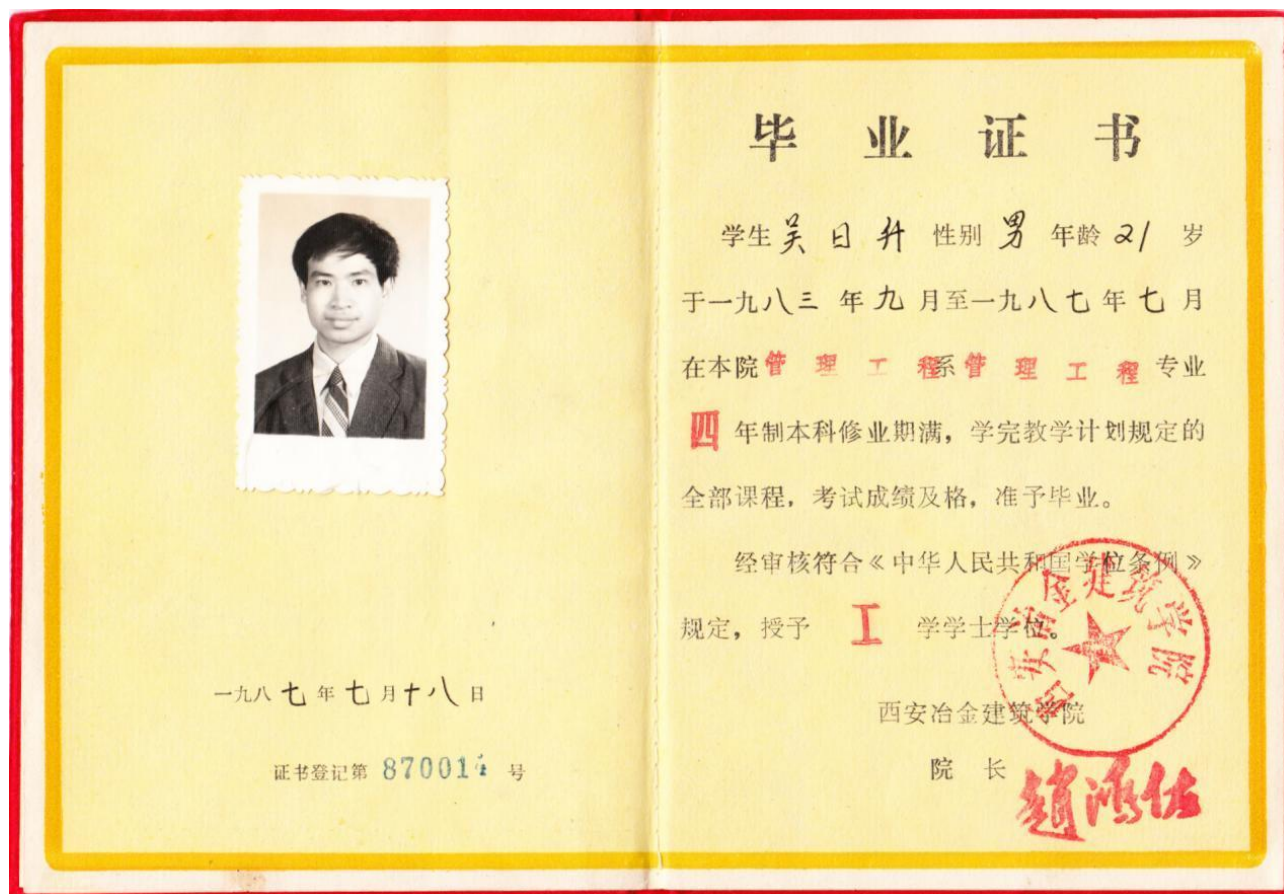 一九八七年七月十八日
证书登记第 870014 号
毕业证书
学生吴日升 性别 男 年龄 21 岁
于一九八三年九月至一九八七年七月
在本院管理工程系管理工程专业
四年制本科修业期满，学完教学计划规定的
全部课程，考试成绩及格，准予毕业。
经审核符合《中华人民共和国学位条例》
规定，授予 工 学学士学位。
西安冶金建筑学院
西安冶金建筑学院
院 长
趙鸿佐